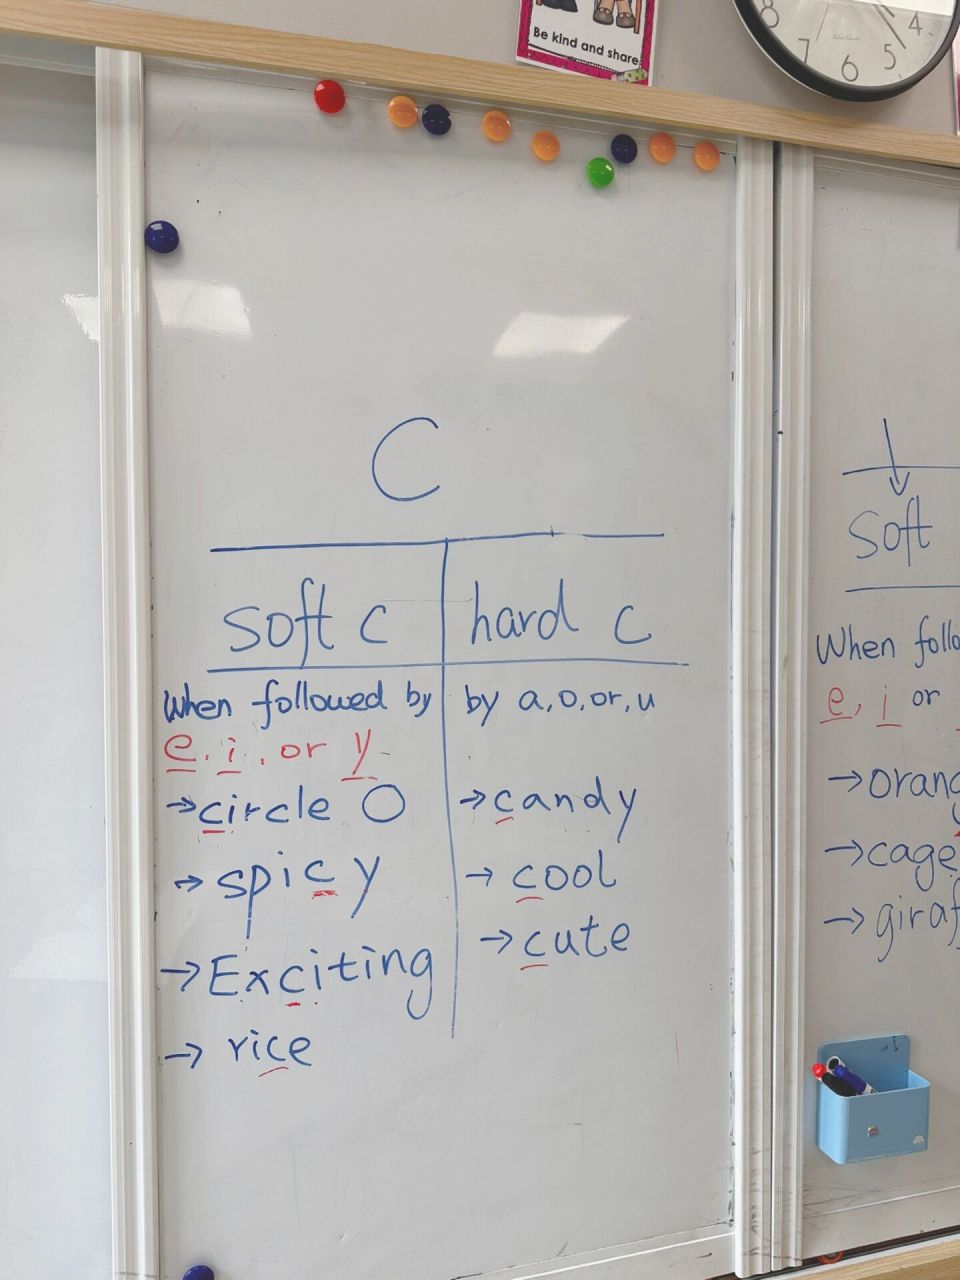 Be kind and share
8
7
6
5
4
C
soft c
hard c
When followed by
e, i, or y
→circle O
→ spicy
→Exciting
→ rice
by a, o, or, u
→candy
→ cool
→ cute
soft
When follo
e, i or
→orang
→cage
→ giraf